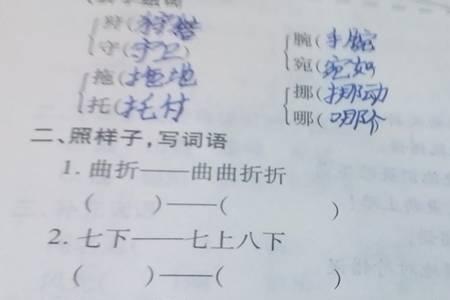 狩(狩猎
守(守卫) 腕(手腕
宛(宛如
拖(拖地
托(托付 挪(挪动
哪(哪
二、照样子,写词语
1. 曲折——曲曲折折
( )——( )
2. 七下——七上八下
( )——( )